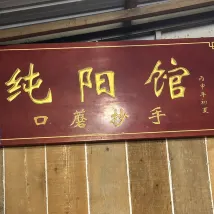 纯阳馆
口磨抄手
丙申年初夏